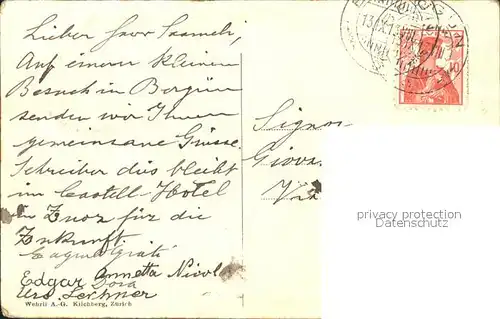 Lieber Herr
Auf einem kleinen
Besuch in Bergün
senden wir Ihnen
gemeinsame Grüsse.
Schreiber dies bleibt
im Castell-Hotel
in Zuoz für die
Zukunft.
Edgar Annetta
Dora
Urs. Lechner
Wehrli A.-G. Kilchberg, Zürich
Signor
Giova
10
privacy protection
Datenschutz